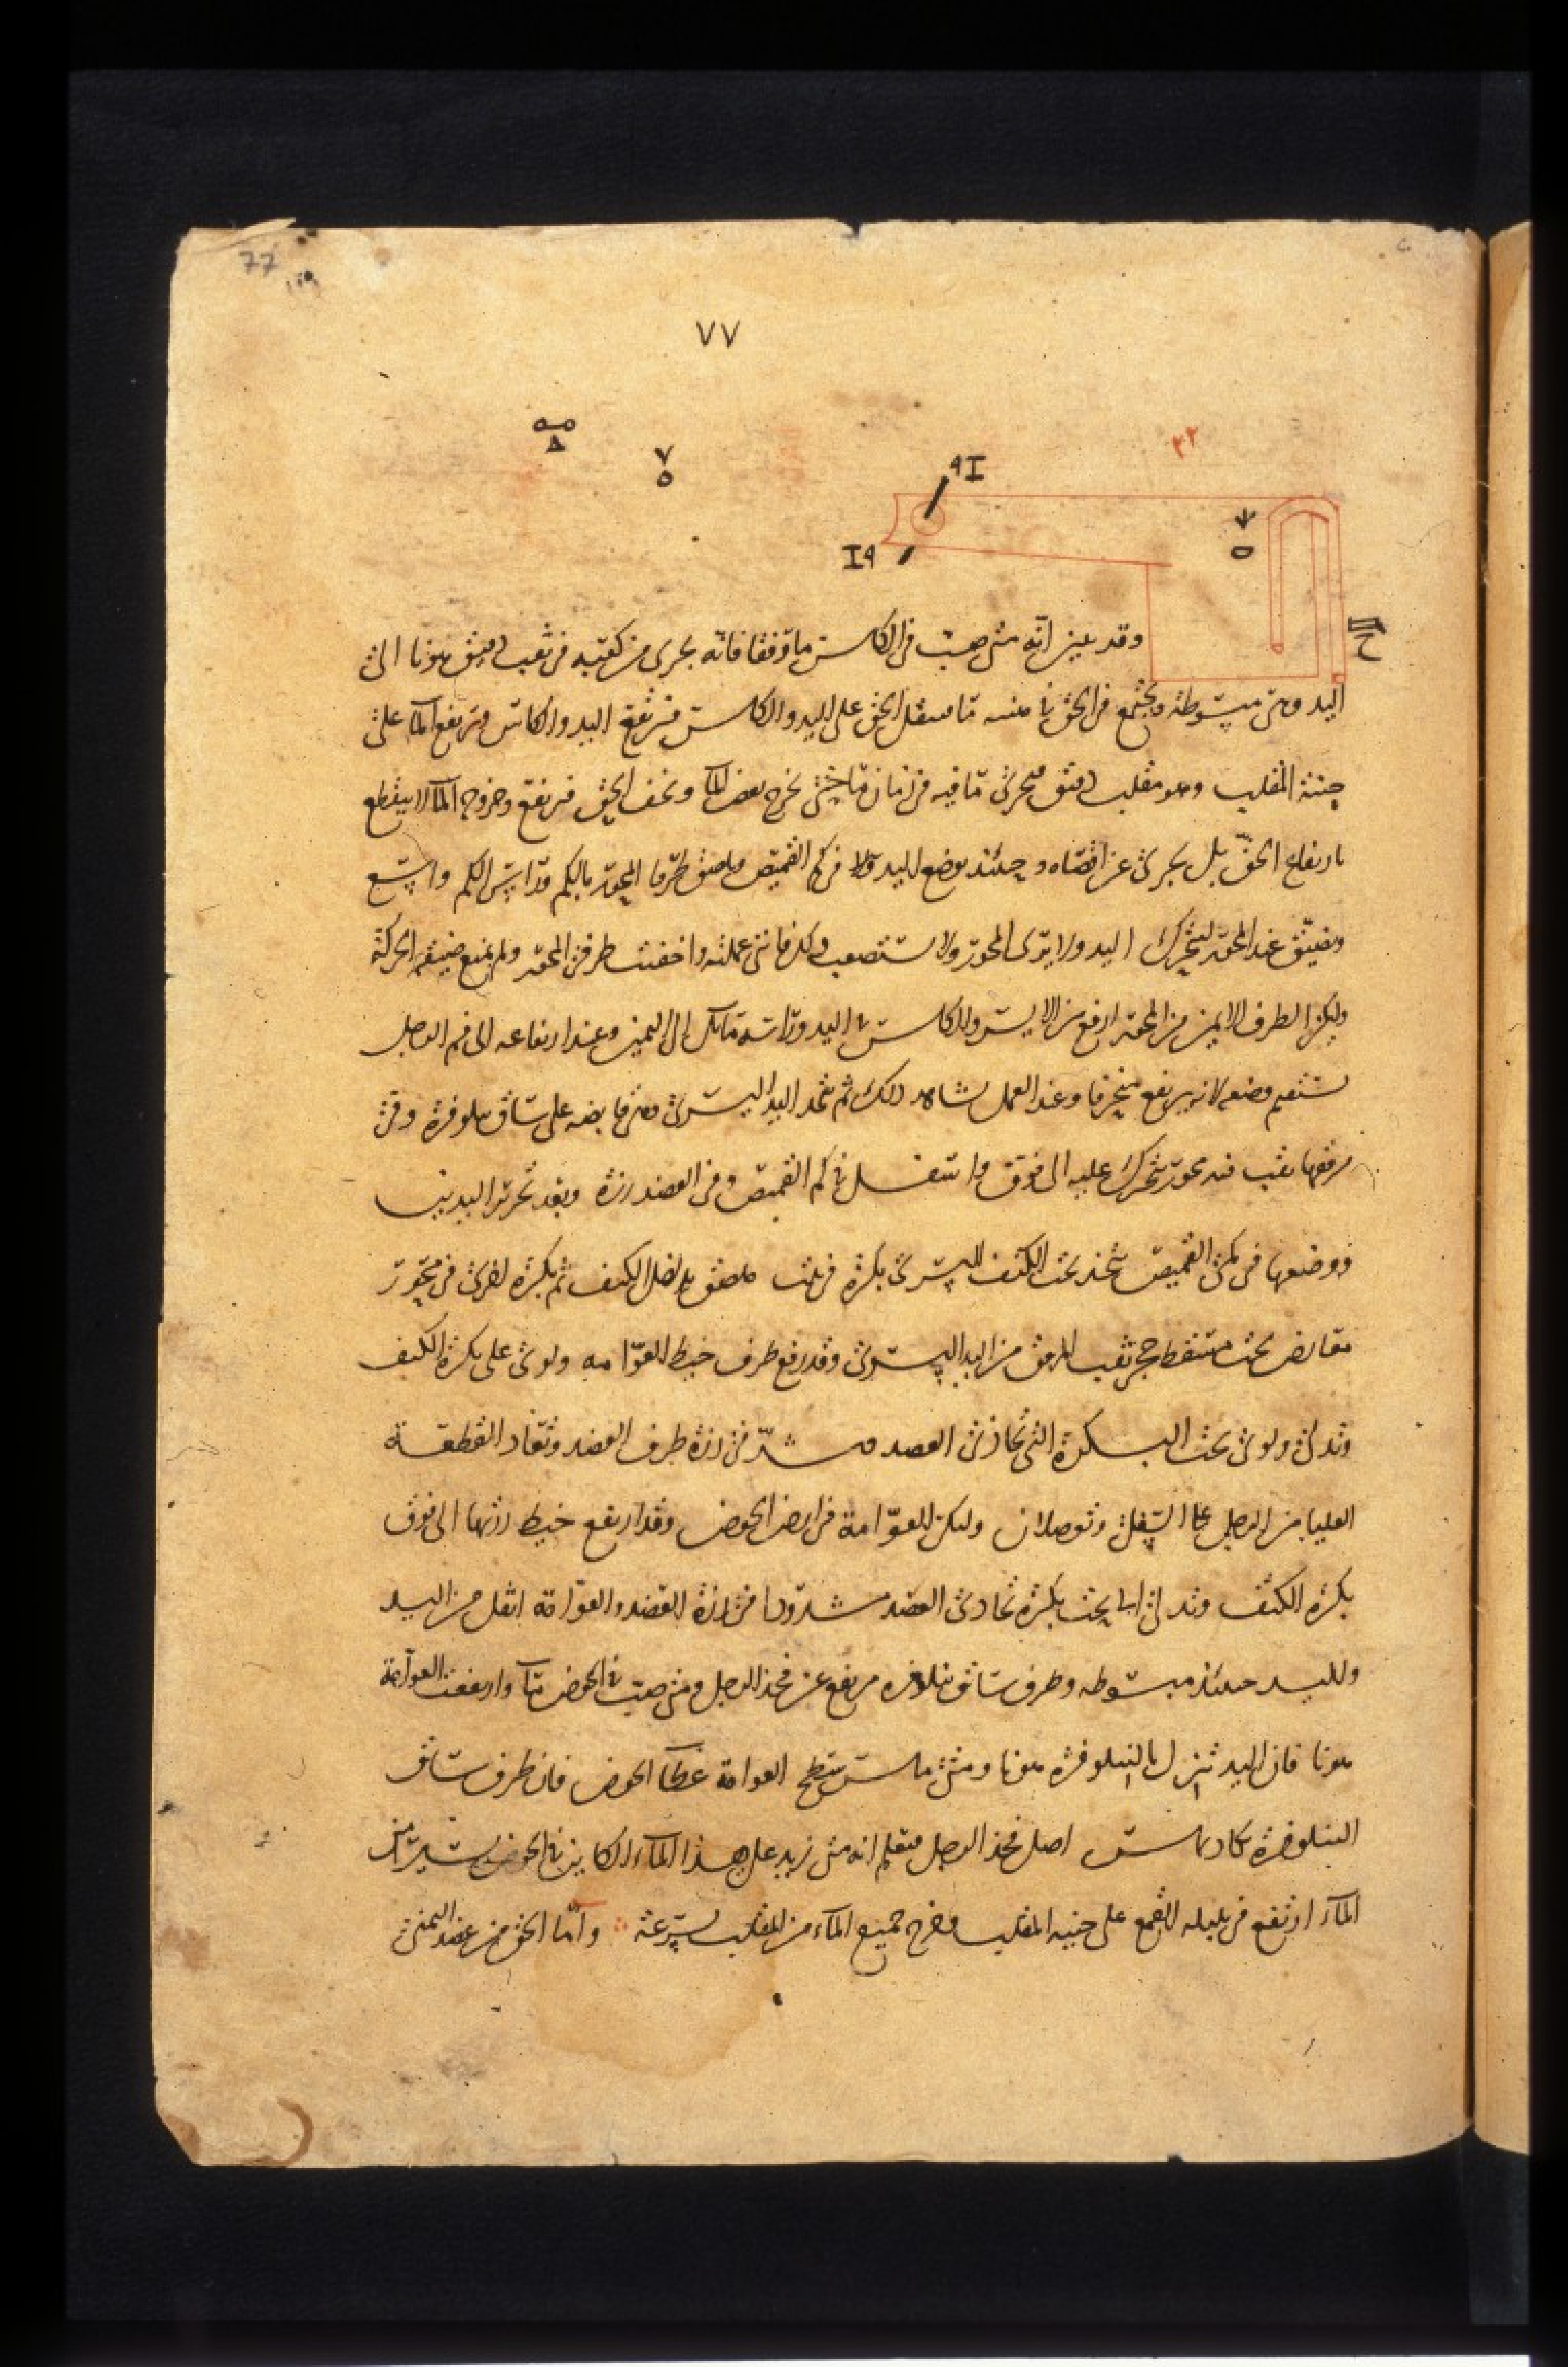 77
٧٧
٢٢
وقد يبين انه متى صب في الكاس ماء وفقا فانه يجري من كعبه في ثقب دقيق هونا الى
اليد وهي مبسوطة ويجتمع في الحق فا منه ما يثقل الحق على اليد والكاس فترتفع اليد والكاس ويرتفع الماء على
حنية المقلب وهو مقلب دقيق فيجرى ما فيه في زمان ما حتى يخرج بعض الماء ويخف الحق فيرتفع وخروج الماء لا ينقطع
بارتفاع الحق بل يجرى عن اقصاه وحينئذ يوضع اليد اولا في كم القميص ويلصق طرفا المحور بالكم وراس الكم واسع
ويضيق عند المحور لتتحرك اليد ولا يرى المحور ولا يستصعب ذلك فانني عملته واخفيت طرفي المحور ولم يمنع ضيقه الحركة
وليكن الطرف الايمن من المحور ارفع من الايسر والكاس في اليد وراسه مائل الى اليمين وعند ارتفاعه الى فم الرجل
يستقيم وضعه لانه يرتفع منحرفا وعند العمل يشاهد ذلك ثم تتخذ اليد اليسرى وهي قابضة على ساق نيلوفرة وفي
مرفقها ثقب فيه محور يتحرك عليه الى فوق واسفل في كم القميص وفي العضد رزة وبعد تحرير اليدين
ووضعها في كمي القميص تتخذ تحت الكتف اليسرى بكرة في بيت ملصق بداخل الكتف ثم بكرة اخرى في محور
مقابض تحت مسقط حجر ثقب المرفق من اليد اليسرى وقد رفع طرف خيط العوامة ولوى على بكرة الكتف
وتدلى ولوى تحت البكرة التي تحاذي العضد وشد في رزة طرف العضد وتعاد القطعة
العليا من الرجل على السفلى وتوصلان ولتكن العوامة في ارض الحوض وقد ارتفع خيط رزتها الى فوق
بكرة الكتف وتدلى ايضا تحت بكرة تحاذي العضد مشدودا في رزة العضد والعوامة اثقل من اليد
واليد حينئذ مبسوطة وطرف ساق نيلوفره مرتفع عن فخذ الرجل ومتى صب في الحوض ماء وارتفعت العوامة
هونا فان اليد تنزل بالنيلوفرة هونا ومتى ماس سطح العوامة غطاء الحوض فان طرف ساق
النيلوفرة كاد يماس اصل فخذ الرجل فيعلم انه متى زيد على هذا الماء الكاين في الحوض يسير من
الماء ارتفع في بلبلة القمع على حنية المقلب وخرج جميع الماء من المقلب بسرعة واما الحق من عضد اليمنى